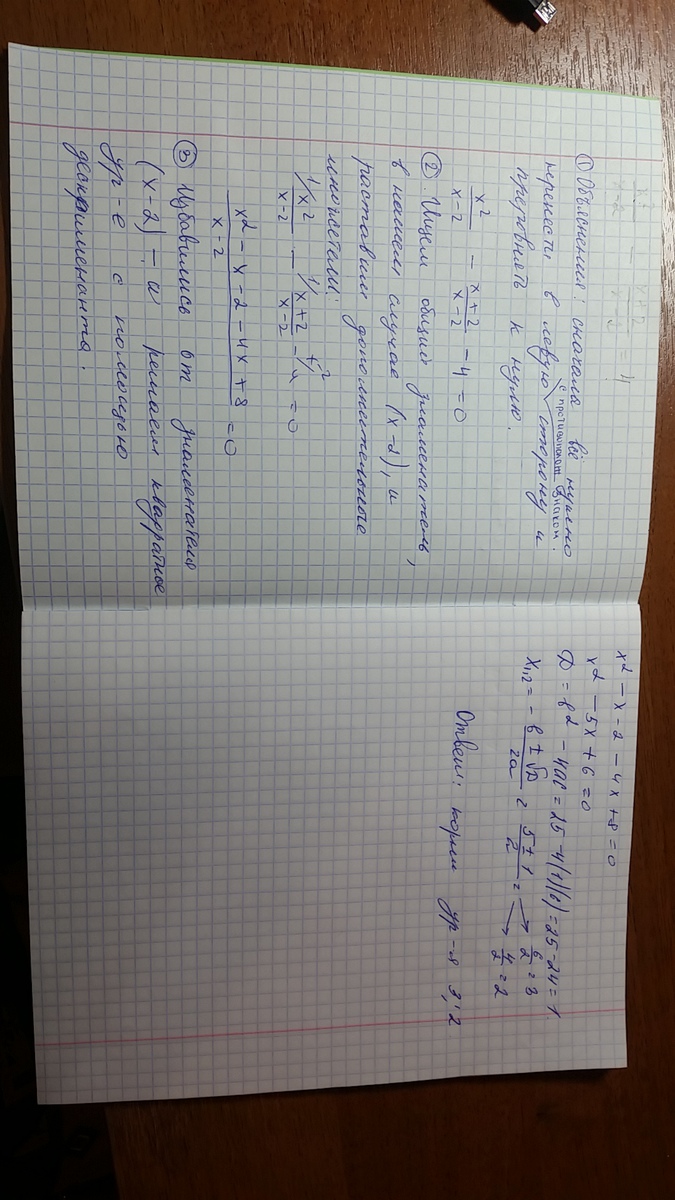 x² / x-2 - x+2 / x-2 = 4
① Объяснения: сначала всё нужно
перенести в левую сторону и
с противоположным знаком.
прировнять к нулю.
x² / x-2 - x+2 / x-2 - 4 = 0
② Ищем общий знаменатель,
в нашем случае (x-2), и
раставим дополнительные
множетели:
1/ x² / x-2 - 1/ x+2 / x-2 - x-2/ 4 = 0
x² - x - 2 - 4x + 8 / x - 2 = 0
③ Избавились от знаменателя
(x-2) - и решаем квадратное
ур-е с помощью
дескриминанта:
x² - x - 2 - 4x + 8 = 0
x² - 5x + 6 = 0
D = b² - 4ac = 25 - 4(1)(6) = 25 - 24 = 1
x₁,₂ = -b ± √D / 2a = 5 ± 1 / 2 = → 6/2 = 3
→ 4/2 = 2
Ответ: корни ур-я 3; 2